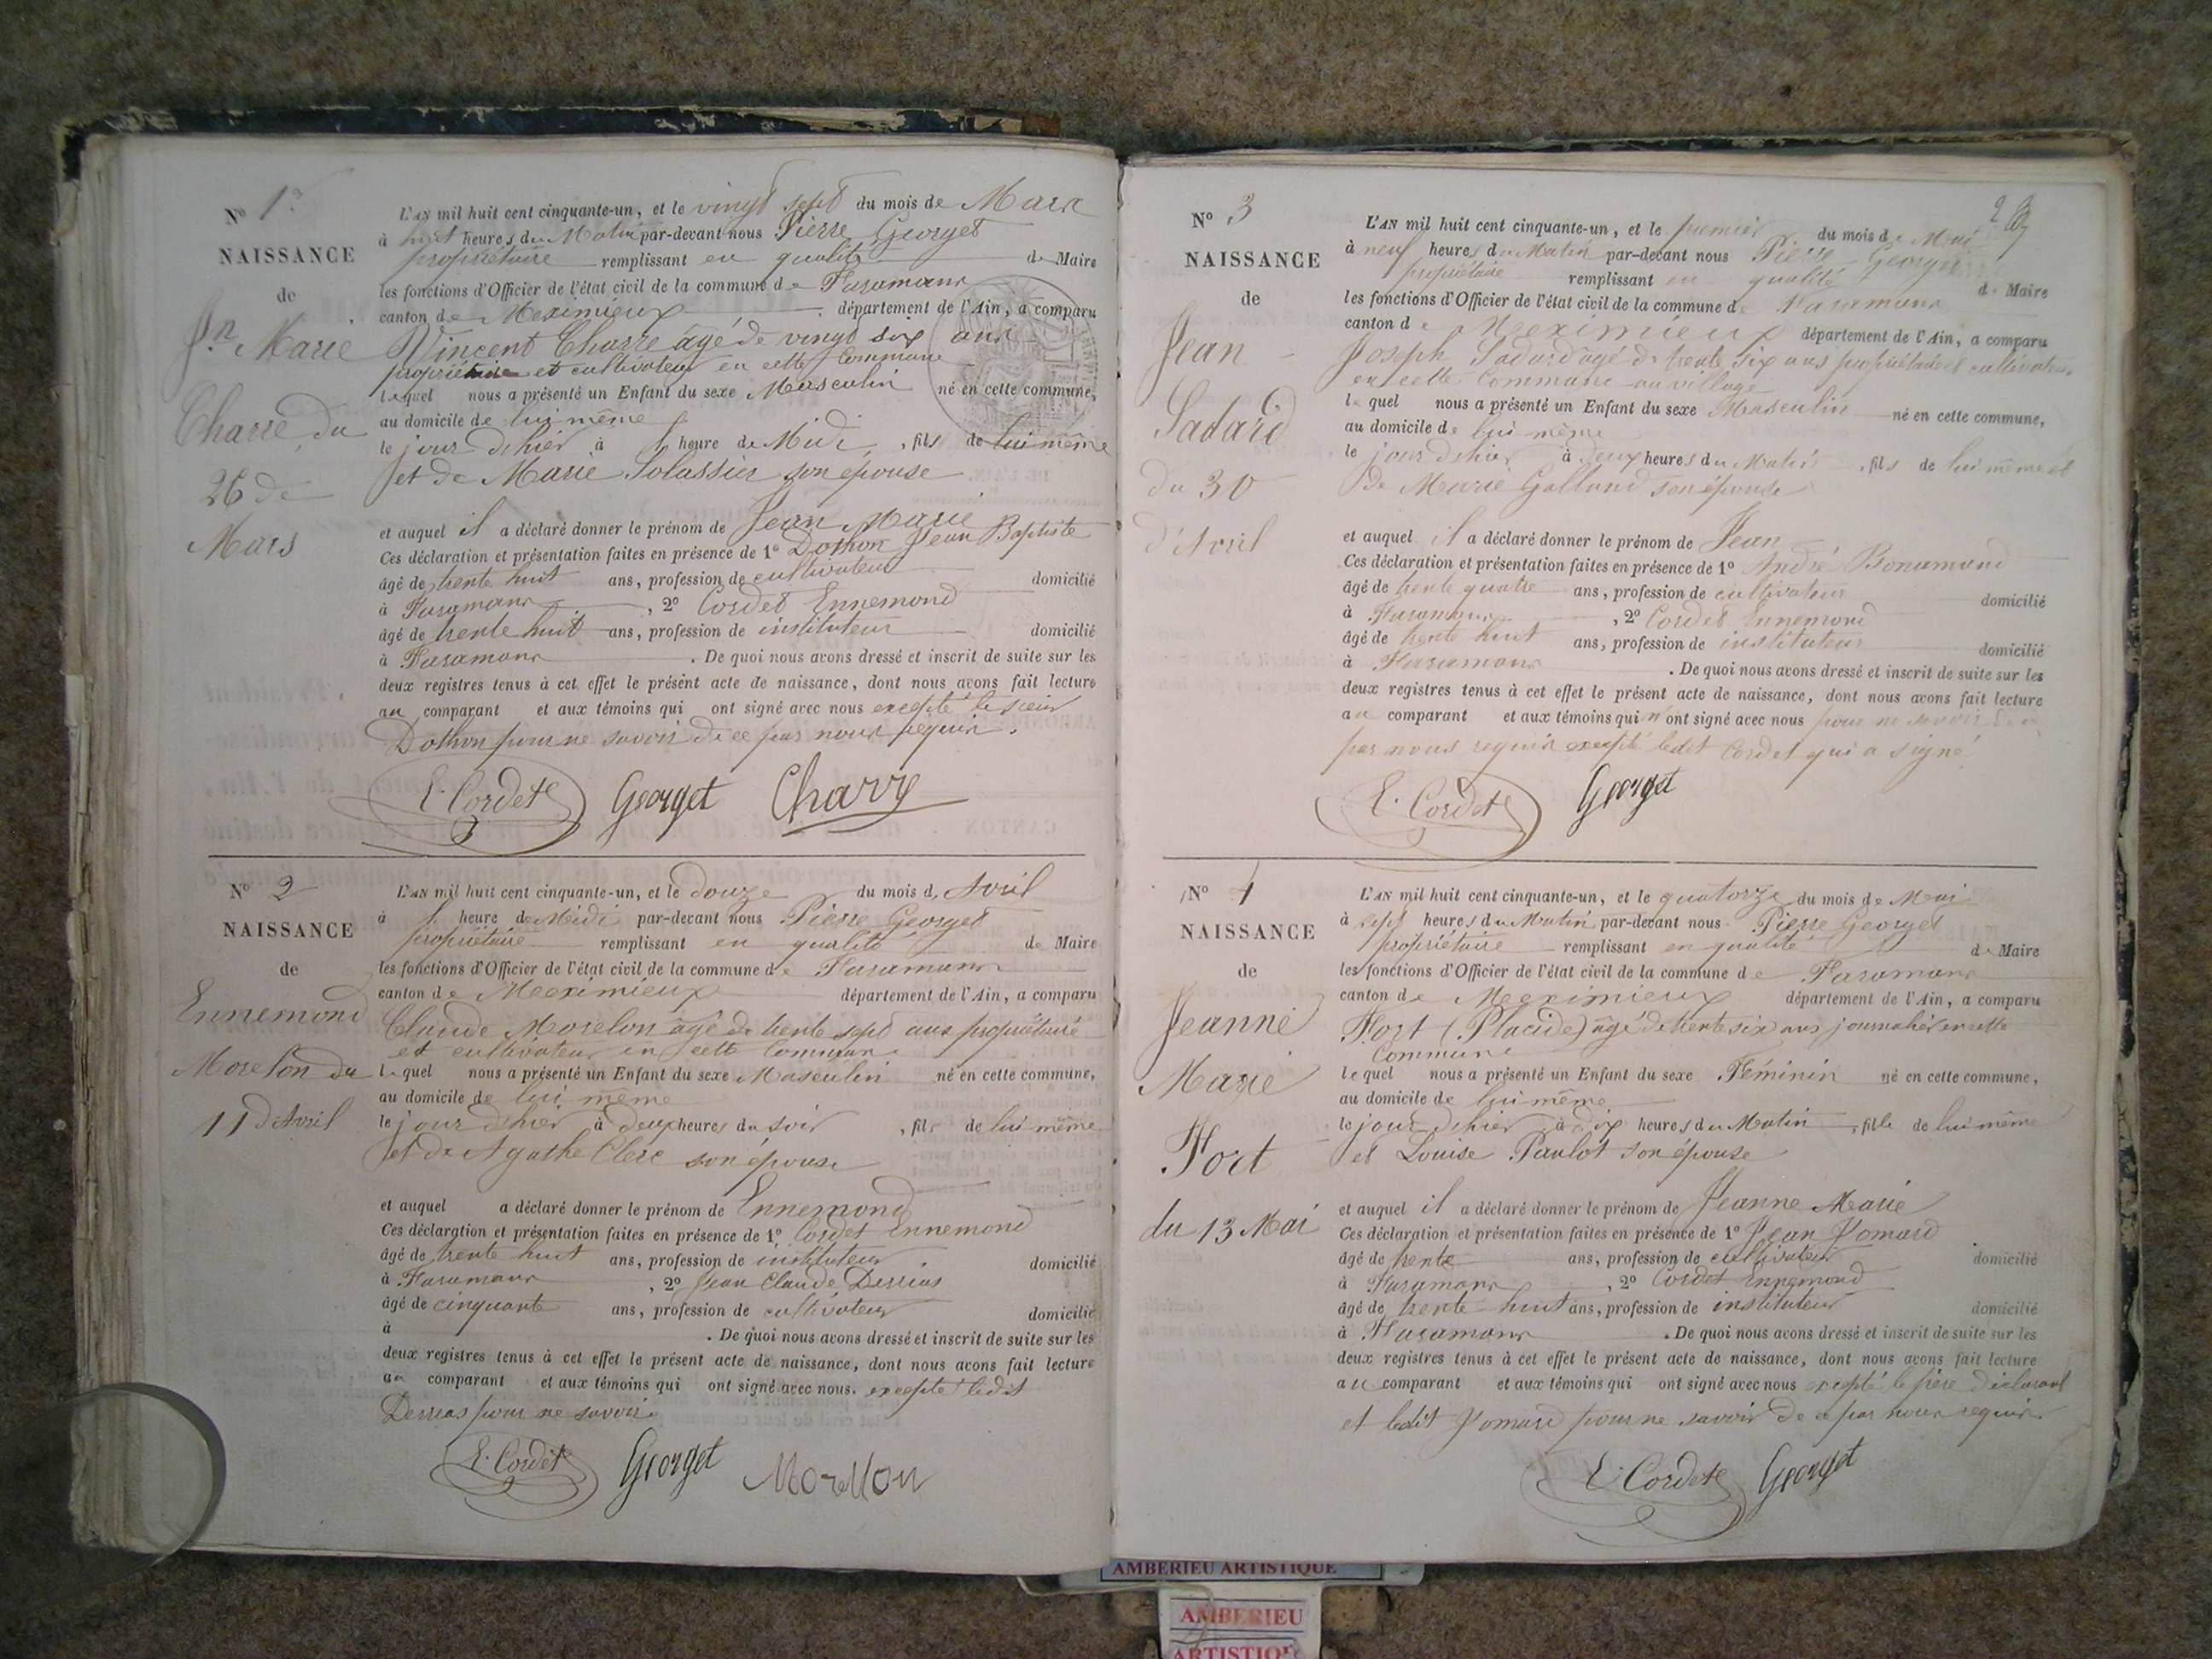 N° 1er
NAISSANCE
de
Jn Marie
Charre du
26 de
Mars
L'AN mil huit cent cinquante-un, et le vingt sept du mois de Mars
à huit heures du Matin par-devant nous Pierre Georget
propriétaire remplissant en qualité de Maire
les fonctions d'Officier de l'état civil de la commune de Faramans
canton de Meximieux département de l'Ain, a comparu
Vincent Charre âgé de vingt six ans
propriétaire et cultivateur en cette Commune
lequel nous a présenté un Enfant du sexe Masculin né en cette commune,
au domicile de lui même
le jour d'hier à 1 heure de Midi, fils de lui même
et de Marie Solassier son épouse
et auquel il a déclaré donner le prénom de Jean Marie
Ces déclaration et présentation faites en présence de 1° Dothon Jean Baptiste
âgé de trente huit ans, profession de cultivateur domicilié
à Faramans, 2° Cordet Ennemond
âgé de trente huit ans, profession de instituteur domicilié
à Faramans. De quoi nous avons dressé et inscrit de suite sur les
deux registres tenus à cet effet le présent acte de naissance, dont nous avons fait lecture
au comparant et aux témoins qui ont signé avec nous excepté le sieur
Dothon pour ne savoir de ce par nous requis.
E. Cordet Georget Charre
N° 2
NAISSANCE
de
Ennemond
Morelon du
11 d'Avril
L'AN mil huit cent cinquante-un, et le douze du mois d'Avril
à 1 heure de Midi par-devant nous Pierre Georget
propriétaire remplissant en qualité de Maire
les fonctions d'Officier de l'état civil de la commune de Faramans
canton de Meximieux département de l'Ain, a comparu
Claude Morelon âgé de trente sept ans propriétaire
et cultivateur en cette Commune
lequel nous a présenté un Enfant du sexe Masculin né en cette commune,
au domicile de lui même
le jour d'hier à deux heures du soir, fils de lui même
et de Agathe Clerc son épouse
et auquel a déclaré donner le prénom de Ennemond
Ces déclaration et présentation faites en présence de 1° Cordet Ennemond
âgé de trente huit ans, profession de instituteur domicilié
à Faramans, 2° Jean Claude Derrias
âgé de cinquante ans, profession de cultivateur domicilié
à . De quoi nous avons dressé et inscrit de suite sur les
deux registres tenus à cet effet le présent acte de naissance, dont nous avons fait lecture
au comparant et aux témoins qui ont signé avec nous. excepté ledit
Derrias pour ne savoir.
E. Cordet Georget Morellon
N° 3
NAISSANCE
de
Jean
Sadard
du 30
d'Avril
L'AN mil huit cent cinquante-un, et le premier du mois de Mai
à neuf heures du Matin par-devant nous Pierre Georget
propriétaire remplissant en qualité de Maire
les fonctions d'Officier de l'état civil de la commune de Faramans
canton de Meximieux département de l'Ain, a comparu
Joseph Sadard âgé de trente six ans propriétaire et cultivateur
en cette Commune au village
lequel nous a présenté un Enfant du sexe Masculin né en cette commune,
au domicile de lui même
le jour d'hier à deux heures du Matin, fils de lui même et
de Marie Galland son épouse
et auquel il a déclaré donner le prénom de Jean
Ces déclaration et présentation faites en présence de 1° André Bonamand
âgé de trente quatre ans, profession de cultivateur domicilié
à Faramans, 2° Cordet Ennemond
âgé de trente huit ans, profession de instituteur domicilié
à Faramans. De quoi nous avons dressé et inscrit de suite sur les
deux registres tenus à cet effet le présent acte de naissance, dont nous avons fait lecture
au comparant et aux témoins qui n'ont signé avec nous pour ne savoir de ce
par nous requis excepté ledit Cordet qui a signé
E. Cordet Georget
N° 4
NAISSANCE
de
Jeanne
Marie
Fort
du 13 Mai
L'AN mil huit cent cinquante-un, et le quatorze du mois de Mai
à sept heures du Matin par-devant nous Pierre Georget
propriétaire remplissant en qualité de Maire
les fonctions d'Officier de l'état civil de la commune de Faramans
canton de Meximieux département de l'Ain, a comparu
Fort (Placide) âgé de trente six ans journalier en cette
Commune
lequel nous a présenté un Enfant du sexe Féminin né en cette commune,
au domicile de lui même
le jour d'hier à dix heures du Matin, fille de lui même
et Louise Paulot son épouse
et auquel il a déclaré donner le prénom de Jeanne Marie
Ces déclaration et présentation faites en présence de 1° Jean Jomard
âgé de trente ans, profession de cultivateur domicilié
à Faramans, 2° Cordet Ennemond
âgé de trente huit ans, profession de instituteur domicilié
à Faramans. De quoi nous avons dressé et inscrit de suite sur les
deux registres tenus à cet effet le présent acte de naissance, dont nous avons fait lecture
au comparant et aux témoins qui ont signé avec nous excepté le père déclarant
et ledit Jomard pour ne savoir de ce par nous requis.
E. Cordet Georget
AMBERIEU ARTISTIQUE
AMBERIEU